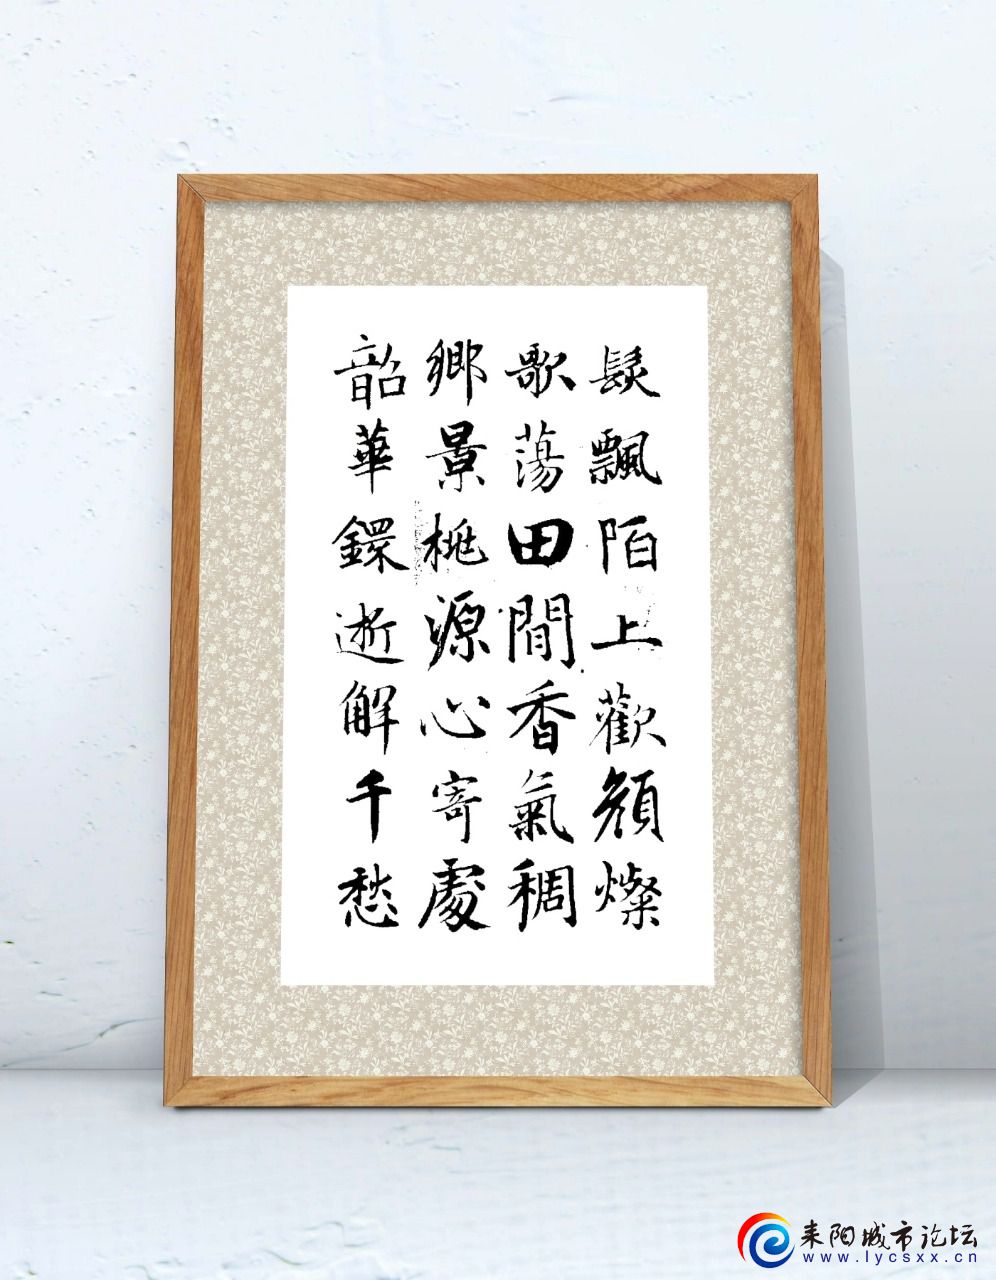 鬓飘陌上歡顔燦
歌蕩田間香氣稠
鄉景桃源心寄處
韶華鐶逝解千愁
耒阳城市论坛
www.lycsxx.cn